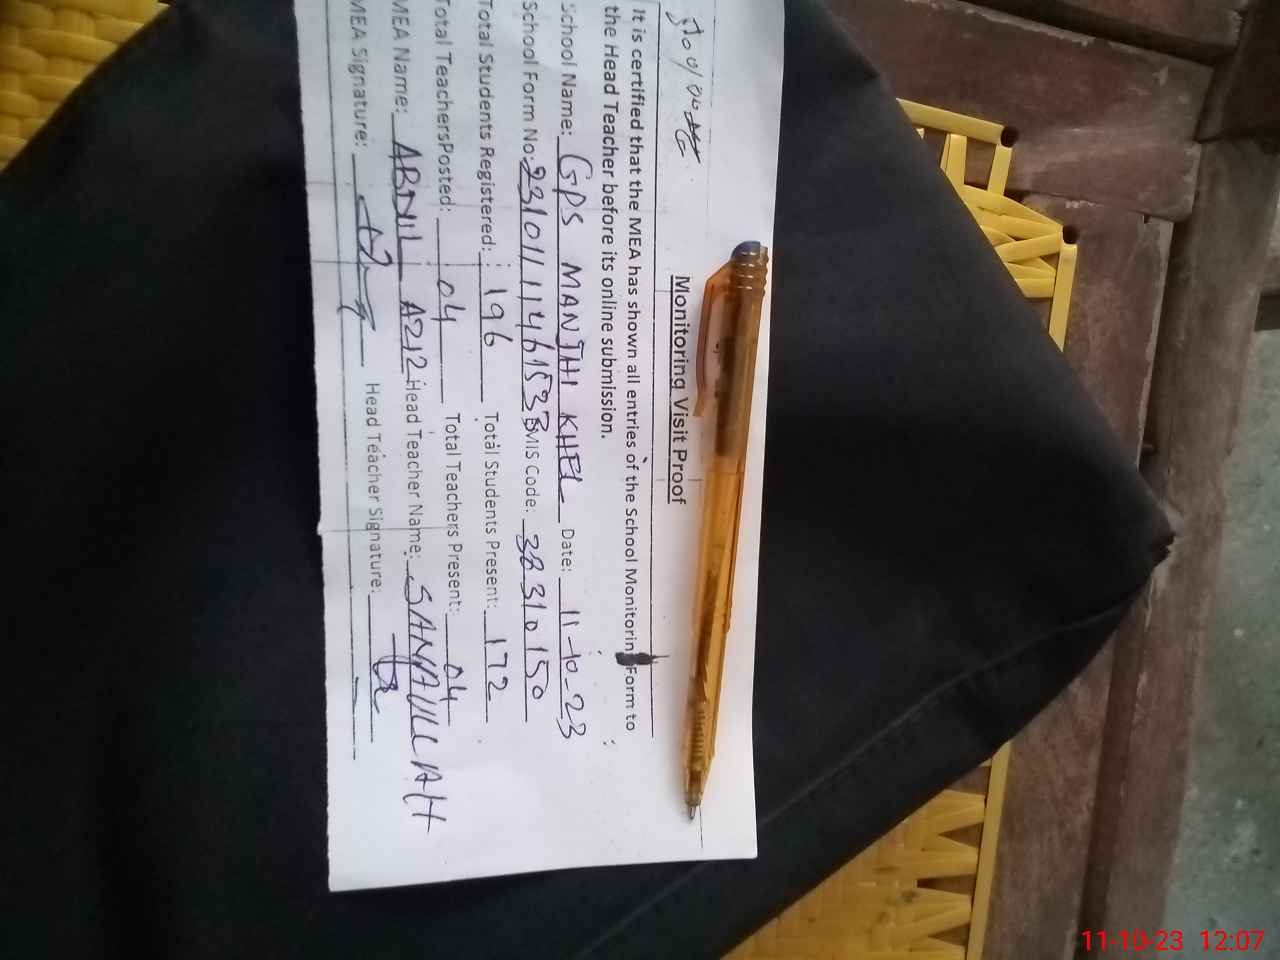 Monitoring Visit Proof
It is certified that the MEA has shown all entries of the School Monitorin Form to
the Head Teacher before its online submission.
School Name: GPS MANJHI KHEL Date: 11-10-23
School Form No: 23101111461533 EMIS Code: 38310150
Total Students Registered: 196 Total Students Present: 172
Total TeachersPosted: 04 Total Teachers Present: 04
MEA Name: ABDUL AZIZ Head Teacher Name: SANAULLAH
MEA Signature: Head Teacher Signature:
11-10-23 12:07